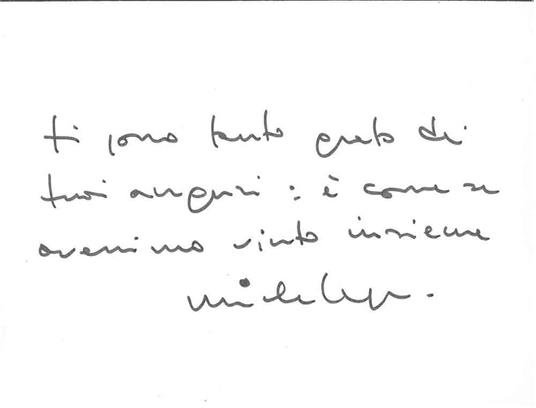 ti sono tanto grato di
tuoi auguri : è come se
avessimo vinto insieme